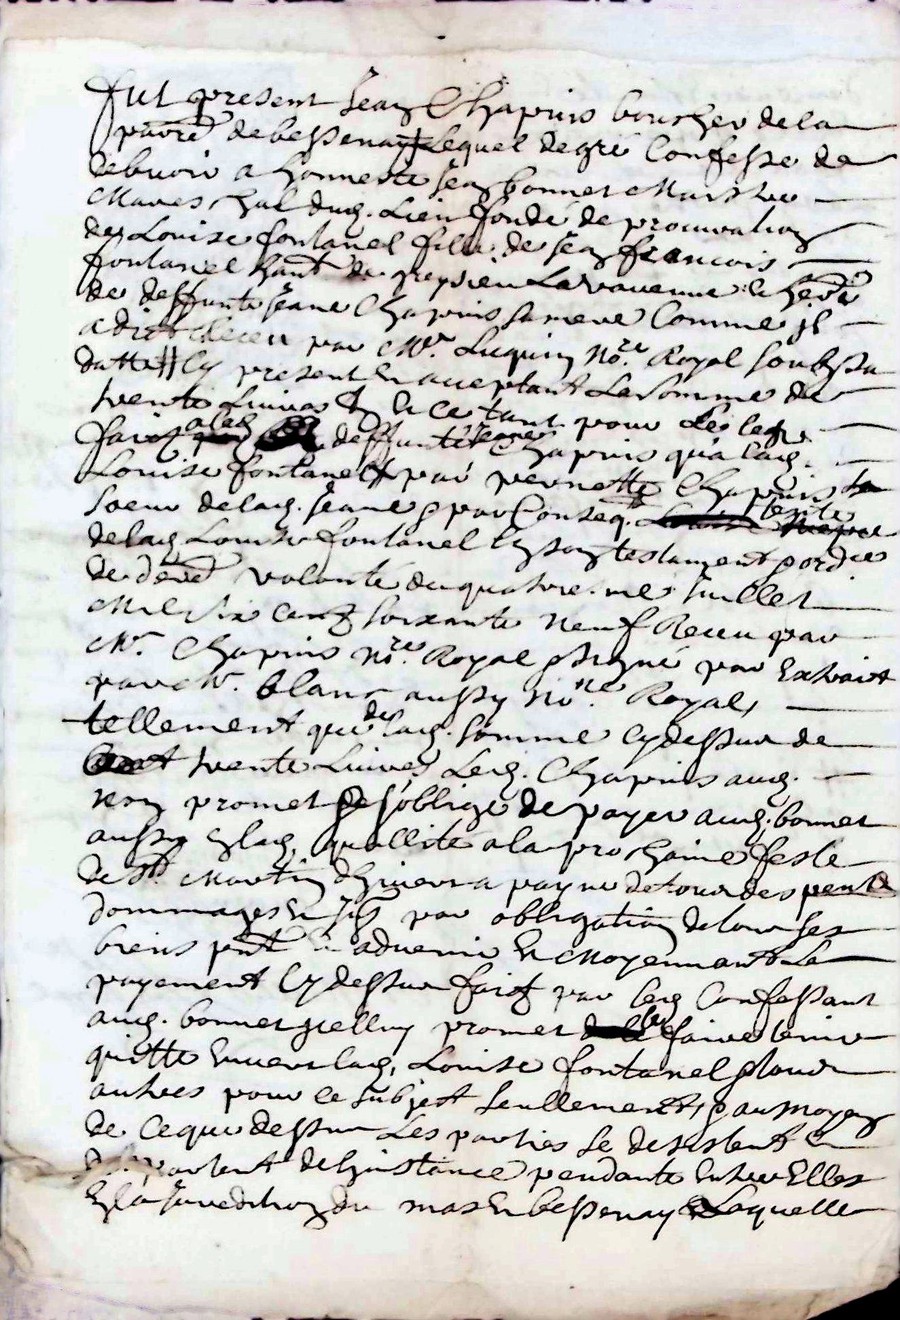 fut present Jean Chapuis boucher de la
parre de bessenay lequel de gré Confesse de
debvoir a honneste Jean bonnet Maistre
Mareschal dud. Lieu fondé de procuration
de Louise fontanel fille de Jean francois
fontanel hant de La varenne
de deffunte Jeane Chapuis sa mere Comme il
a dict receu par Me. Luquin nore. Royal soubz sa
datte Cy present En acceptant La somme de
trente Livres Et ce tant pour Les legz
faict a lad. deffunte Jeane Chapuis qua lad.
Louise fontanel par pernette Chapuis
Soeur de lad. Jeane & par Conseqt. tente
de lad Louise fontanel En son testament &
de derre volonté du quatrie. me Juillet
Mil Six centz soixante neuf Receu par
Me. Chapuis nore. Royal & signé par Extraict
par Me. blanc aussy nore. Royal,
tellement que de lad. somme Cy dessus de
trente Livres Led. Chapuis aud.
nom promet & s'oblige de payer aud. bonnet
aussy En lad. quallite a la prochaine feste
de St. Martin d'hiver a payne de tous despens
dommages Et par obligation de tous ses
biens pnt Et advenir Et Moyennant Le
payement Cy dessus faict par led Confessant
aud. bonnet icelluy promet le faire tenir
quitte Envers lad. Louise fontanel & tous
autres pour ce subject seullement, & au moyen
de ce que dessus Les parties se desistent Et
departent de l'instance pendante Entre Elles
En la Juridiction du mas En bessenay Laquelle